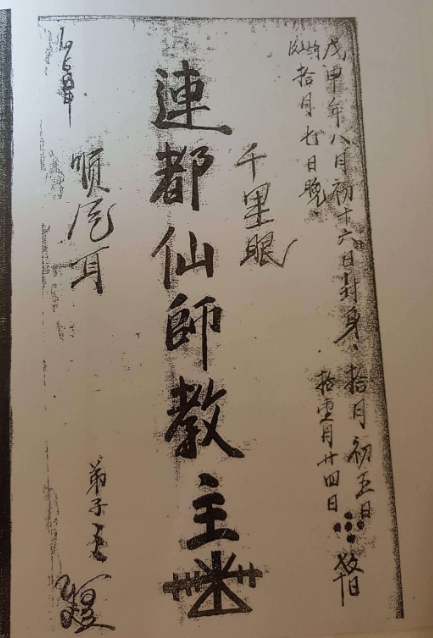 戊申年八月初十六日封身、拾月初五日
拾月七日晚、
拾壹月廿四日
千里眼
連都仙師教主
順風耳
弟子